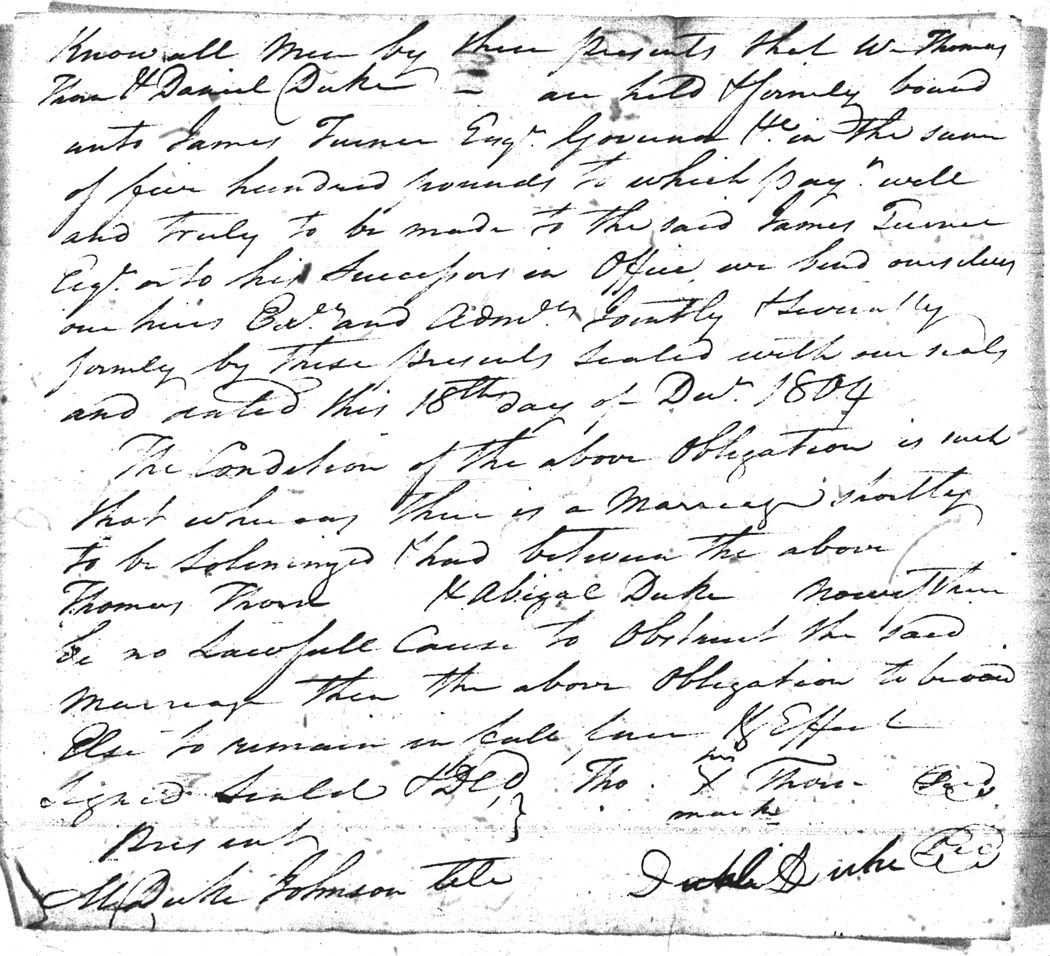 Know all Men by these presents that We Thomas
Thorn & Daniel Duke — are held & firmly bound
unto James Turner Esqr. Governor &c. in the sum
of five hundred pounds to which paym. well
and truly to be made to the said James Turner
Esqr. or to his Successors in Office we bind ourselves
our heirs Exrs. and Admrs. Jointly & severally
firmly by these presents sealed with our seals
and dated this 18th day of Decr. 1804
The Condition of the above Obligation is such
that whereas there is a Marriage shortly
to be Solemnized & had between the above
Thomas Thorn & Abigal Duke now if there
be no Lawfull Cause to Obstruct the said
Marriage then the above Obligation to be void
Else to remain in full force & Effect
Signed Sealed & DLD Tho. his X mark Thorn Seal
Present
M Duke Johnson Duke Seal